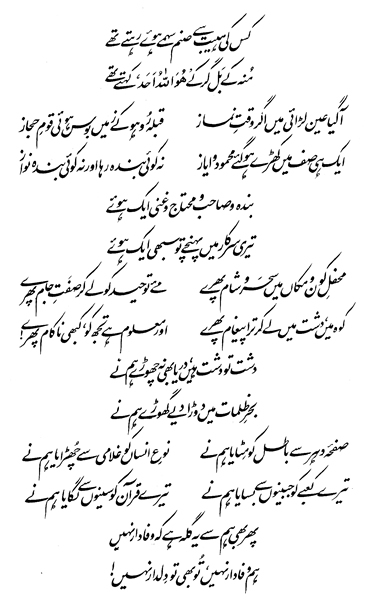 کس کی ہیبت سے صنم سہمے ہوئے رہتے تھے
مُنہ کے بَل گر کے ھُوَاللہُ اَحَد کہتے تھے
آگیا عین لڑائی میں اگر وقتِ نماز قبلہ رُو ہو کے زمیں بوس ہوئی قومِ حجاز
ایک ہی صف میں کھڑے ہو گئے محمود و ایاز نہ کوئی بندہ رہا اور نہ کوئی بندہ نواز
بندہ و صاحب و محتاج و غنی ایک ہوئے
تیری سرکار میں پہنچے تو سبھی ایک ہوئے
محفلِ کون و مکاں میں سحر و شام پھرے مئے توحید کو لے کر صفَتِ جام پھرے
کوہ میں دشت میں لے کر ترا پیغام پھرے اور معلوم ہے تجھ کو، کبھی ناکام پھرے!
دشت تو دشت ہیں، دریا بھی نہ چھوڑے ہم نے
بحرِ ظلمات میں دوڑا دیے گھوڑے ہم نے
صفحۂ دہر سے باطل کو مٹایا ہم نے نوعِ انساں کو غلامی سے چھڑایا ہم نے
تیرے کعبے کو جبینوں سے بسایا ہم نے تیرے قرآن کو سینوں سے لگایا ہم نے
پھر بھی ہم سے یہ گلہ ہے کہ وفادار نہیں
ہم وفادار نہیں، تُو بھی تو دِلدار نہیں!